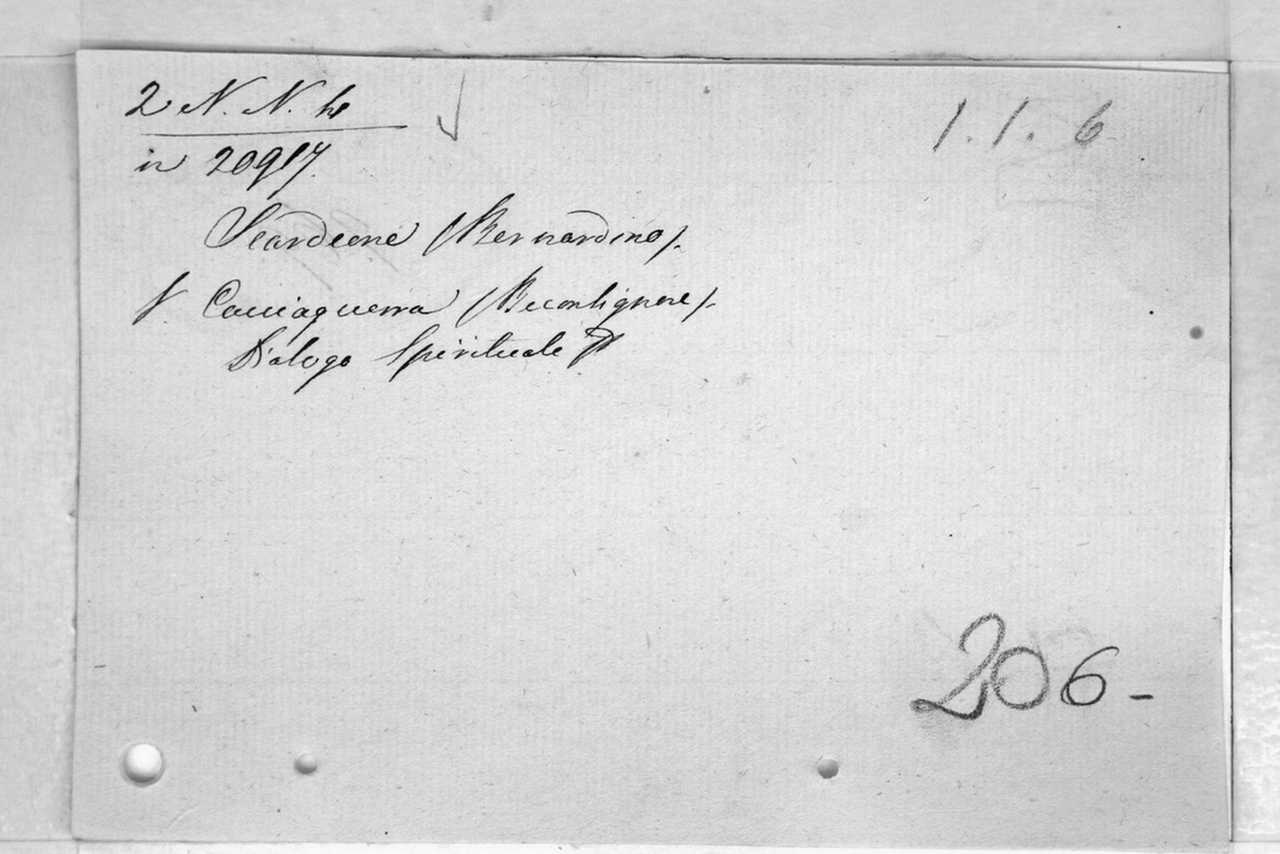 2 N. N. h
1. 1. 6
in 20917.
Scardeone (Bernardino).
V. Cacciaguerra (Buonsignore).
Dialogo Spirituale
206-